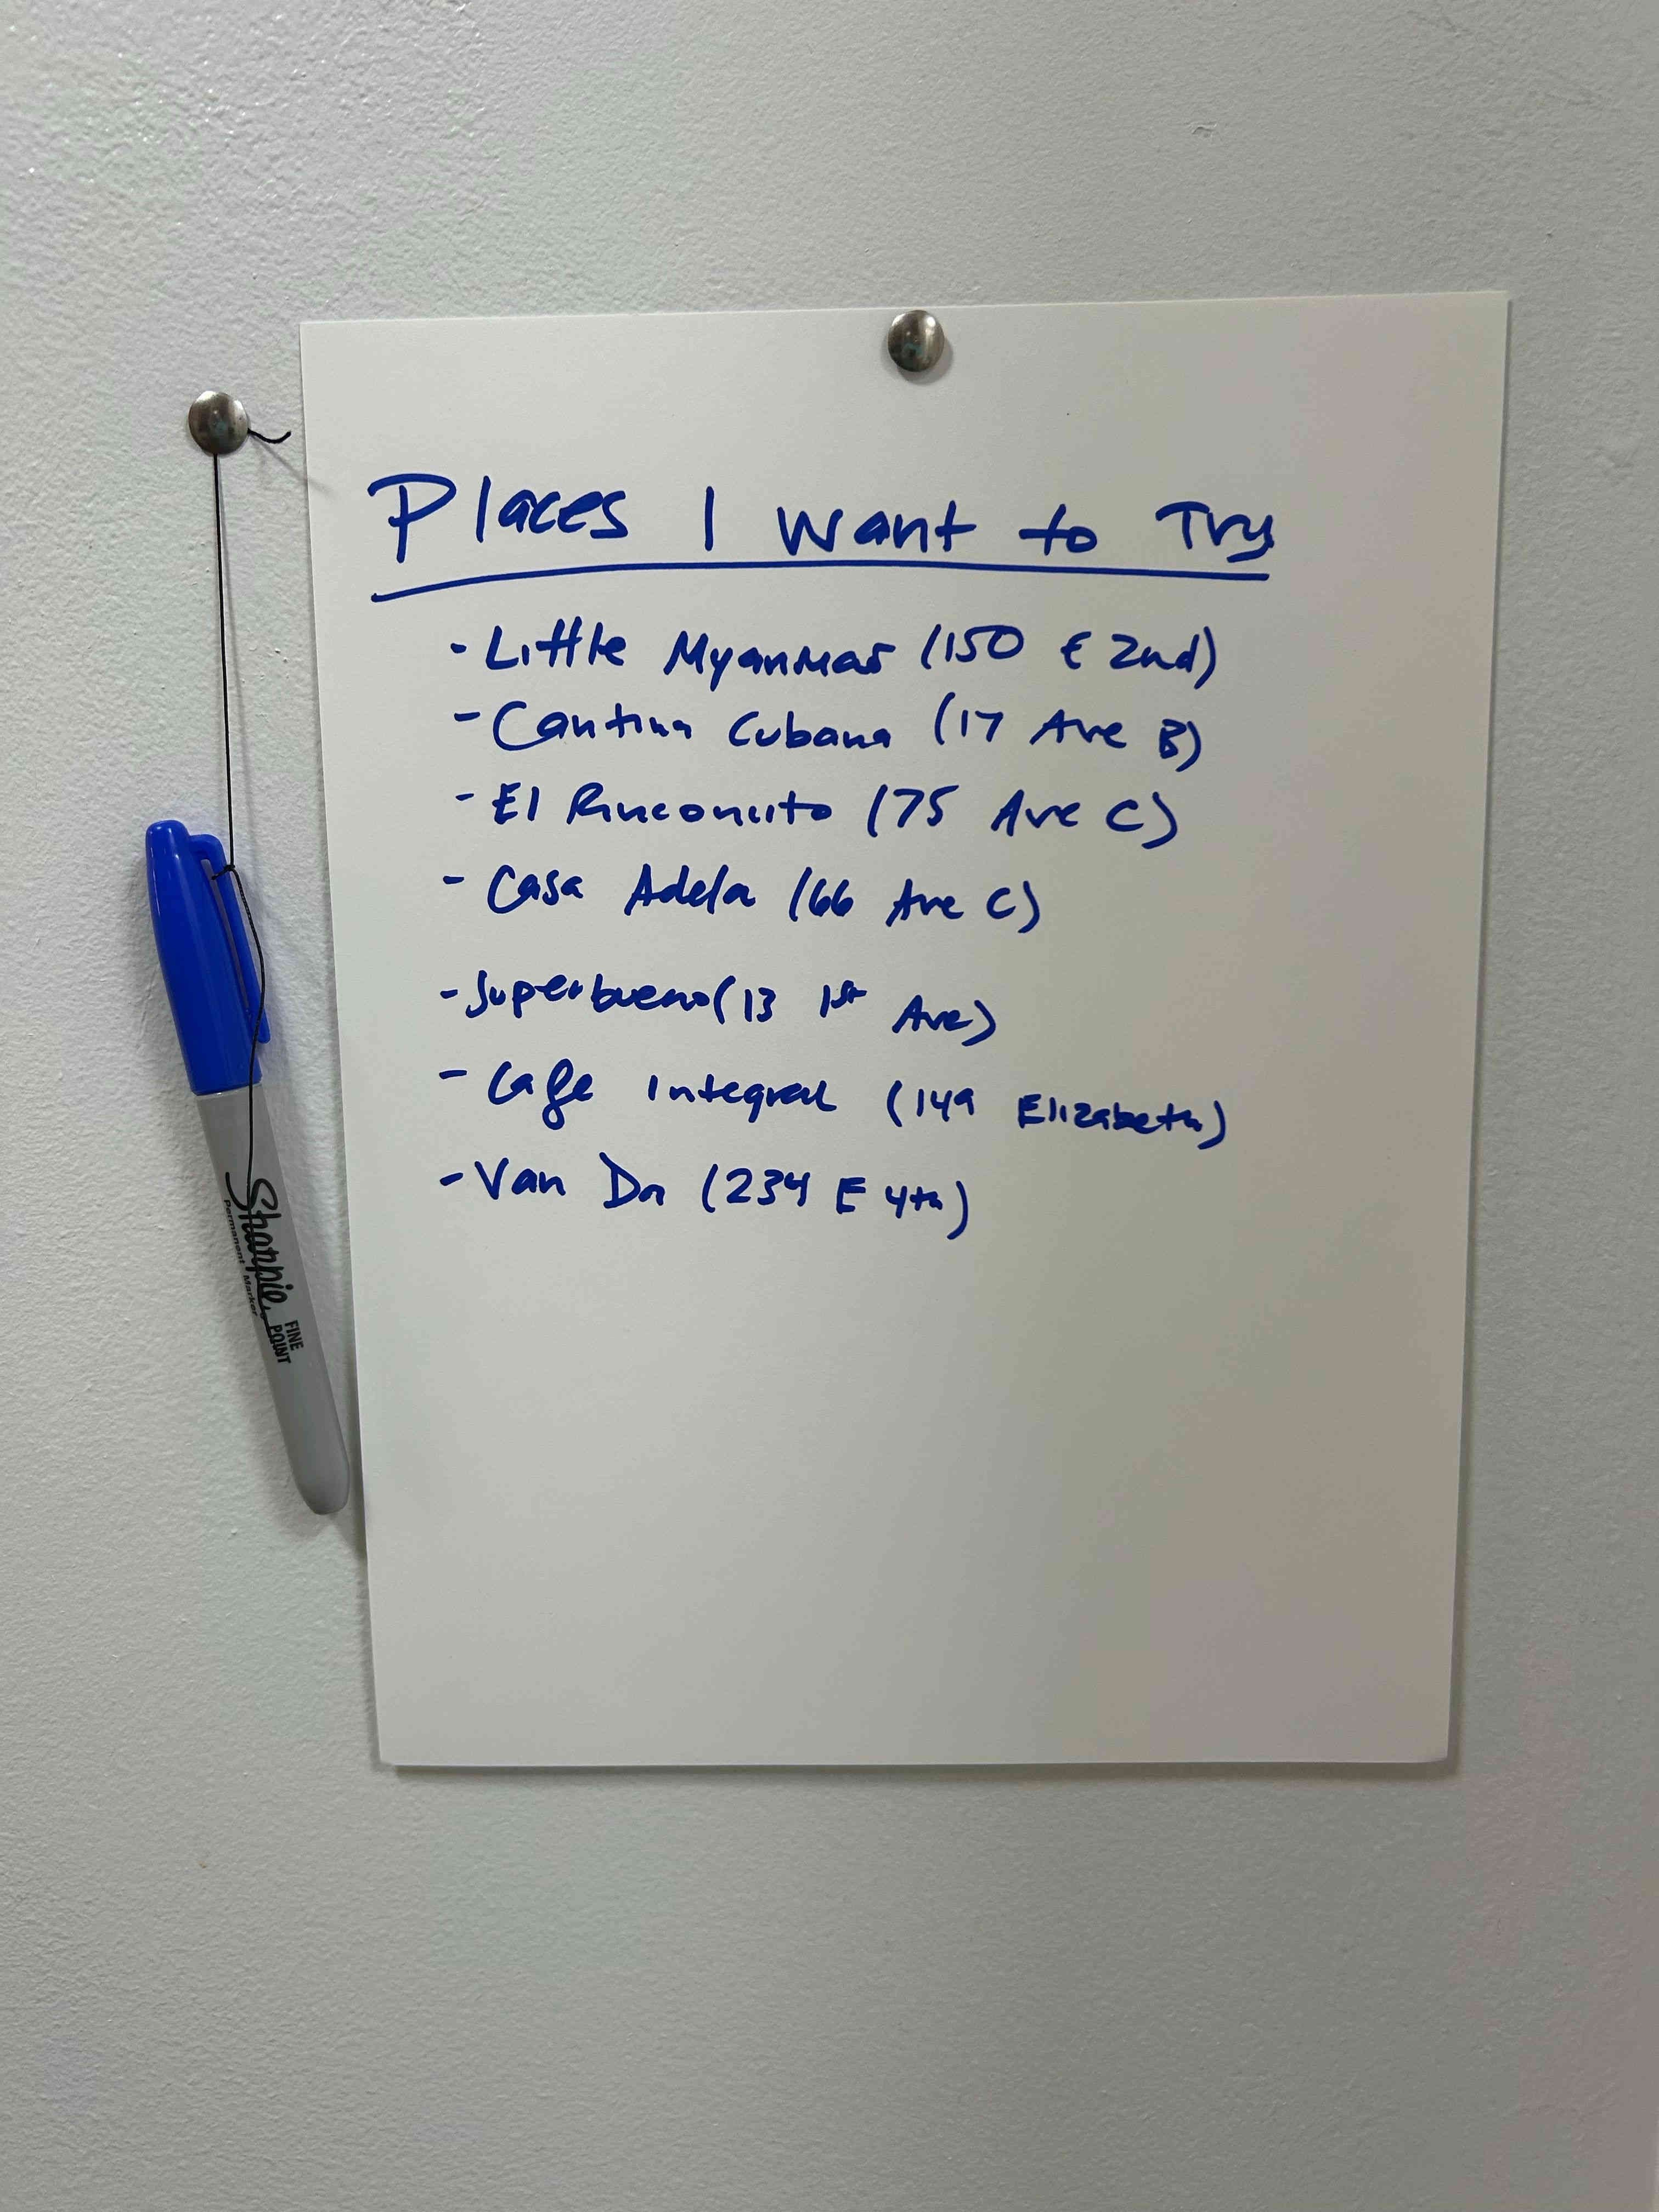 Places I Want to Try
- Little Myanmar (150 E 2nd)
- Cantina Cubana (17 Ave B)
- El Rinconcito (75 Ave C)
- Casa Adela (66 Ave C)
- Superbueno (13 1st Ave)
- Cafe Integral (149 Elizabeth)
- Van Da (234 E 4th)
Sharpie
Permanent Marker
FINE
POINT